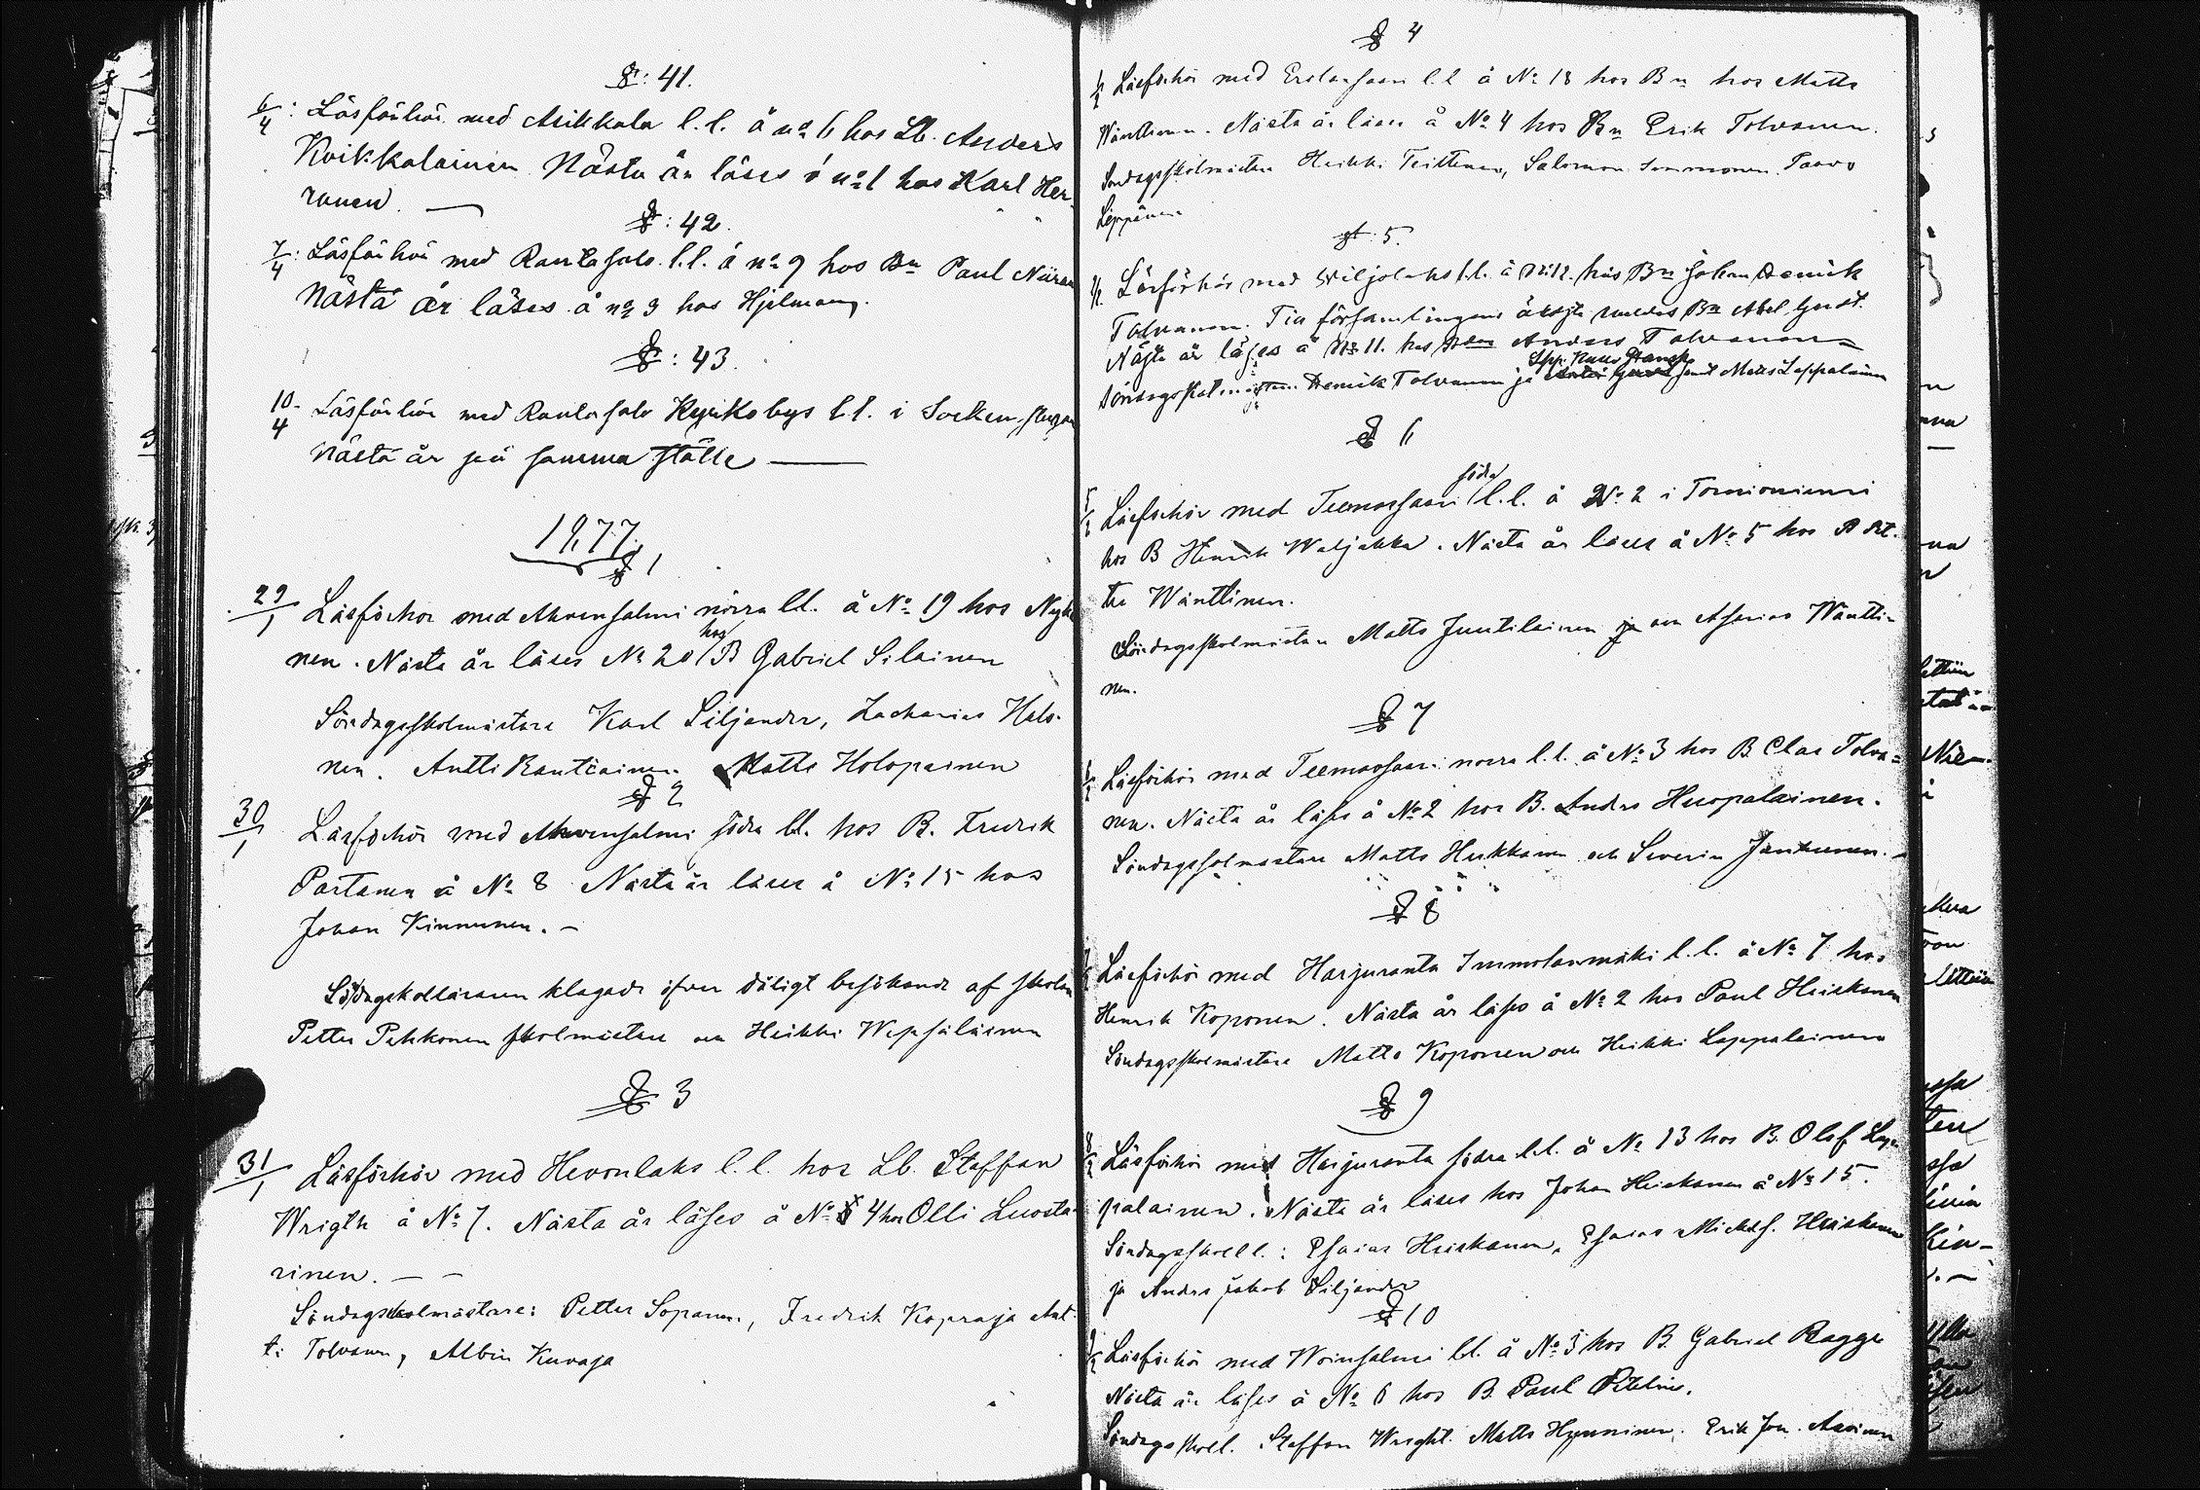 §: 41.
6/4: Läsförhör med Asikkala l.l. å no 6 hos Lb. Anders
Kvikkalainen Nästa år läses å no 1 hos Karl Her-
ranen. —
§: 42.
7/4: Läsförhör med Rautasalo l.l. å no 9 hos Bn Paul
Nästa år läses å no 3 hos Hjelman.
§: 43.
10/4 Läsförhör med Rautasalo Kyrkobys l.l. i Sockenstugan
Nästa år på samma ställe —
1877.
§ 1
29/1 Läsförhör med Ahvensalmi norra ll. å No 19 hos Nyka
nen. Nästa år läses No 20 hos B Gabriel Silainen
Söndagsskolmästare Karl Siljander, Zacharias Halo-
nen. Antti Rautiainen. Matts Holopainen
§ 2
30/1 Läsförhör med Ahvensalmi södra ll. hos B. Fredrik
Partanen å No 8 Nästa år läses å No 15 hos
Johan Kinnunen. –
klagade öfver dåligt besökande af skolan
Petter Pekkonen skolmästare och Heikki Wepsäläinen
§ 3
31/1 Läsförhör med Hevonlaks l.l. hos Lb. Staffan
Wrigth å No 7. Nästa år läses å No 4 hos Olli Luosta-
rinen. — —
Söndagsskolmästare: Petter Sopanen, Fredrik Kopra ja Ant-
ti Tolvanen, Albin Kuvaja
§ 4
Läsförhör med l.l. å No 18 hos Bn hos Matts
Wänttinen. Nästa år läses å No 4 hos Bn Erik Tolvanen.
Söndagsskolmästare Heikki Teittinen, Salomon Immonen. Paavo
Leppänen
§: 5.
Läsförhör med Wiljolaks l.l. å No 12. hos Bn Johan Henrik
Tolvanen. Till församlingens äldste valdes Bn Abel
Nästa år läses å No 11. hos Anders Tolvanen =
Söndagsskolmästare Henrik Tolvanen ja samt Matts Lappalainen
§ 6
Läsförhör med Teemassaari södra l.l. å No 2 i Tornioniemi
hos B Henrik Waljakka. Nästa år läses å No 5 hos B Pet-
ter Wänttinen.
Söndagsskolmästare Matts Juutilainen ja och Asarias Wäntti-
nen.
§ 7
Läsförhör med Teemassaari norra l.l. å No 3 hos B Clas Tolva=
nen. Nästa år läses å No 2 hos B. Anders Huopalainen.
Söndagsskolmästare Matts Hukkanen och Severin Jantunen. –
§ 8
Läsförhör med Harjuranta Immolanmäki l.l. å No 7 hos
Henrik Koponen. Nästa år läses å No 2 hos Paul Heiskanen
Söndagsskolmästare Matts Koponen och Heikki Lappalainen
§ 9
Läsförhör med Harjuranta södra l.l. å No 13 hos B. Olof Lap-
palainen. Nästa år läses hos Johan Heiskanen å No 15.
Söndagsskoll.: Esaias Heiskanen, Esaias Mickelss. Heiskanen
ja Anders Jakob Siljander
§ 10
Läsförhör med Woinsalmi ll. å No 3 hos B. Gabriel Ragge
Nästa år läses å No 6 hos B. Paul
Söndagsskoll. Staffan Wright. Matts Hynninen. Erik Joh. Asoinen